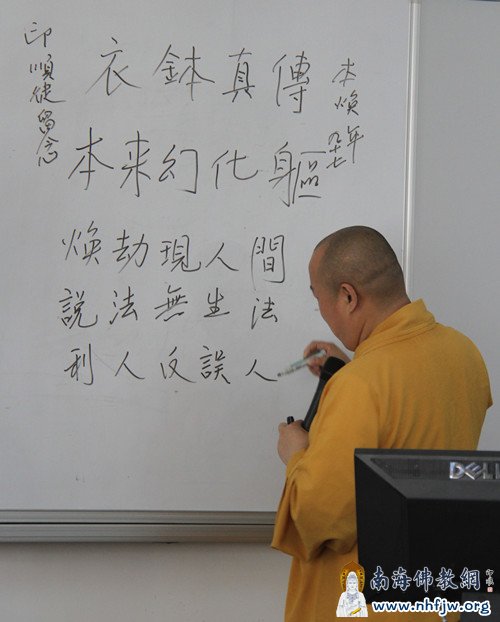 衣鉢真傳
本来幻化軀
煥劫現人間
說法無生法
利人反誤人
本煥
年九十七
印順徒留念
DELL
南海佛教網
www.nhfjw.org